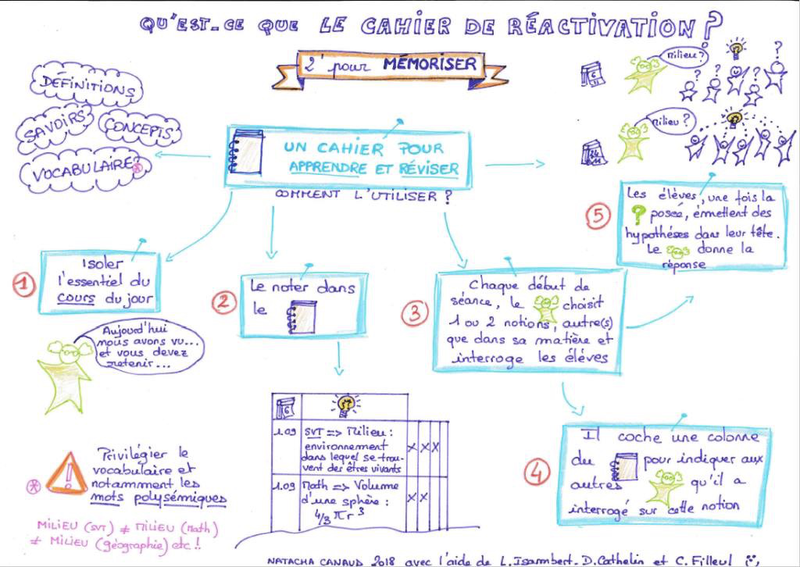 QU'EST-CE QUE LE CAHIER DE RÉACTIVATION ?
2' pour MÉMORISER
DÉFINITIONS
SAVOIRS
CONCEPTS
VOCABULAIRE *
UN CAHIER POUR
APPRENDRE ET RÉVISER
COMMENT L'UTILISER ?
Milieu ?
Milieu ?
1
Isoler
l'essentiel du
cours du jour
Aujourd'hui
nous avons vu...
et vous devez
retenir...
2
Le noter dans
le
3
Chaque début de
séance, le choisit
1 ou 2 notions, autre(s)
que dans sa matière et
interroge les élèves
5
Les élèves, une fois la
? posée, émettent des
hypothèses dans leur tête.
Le donne la
réponse
4
Il coche une colonne
du pour indiquer aux
autres qu'il a
interrogé sur cette notion
6
1.09 SVT => Milieu :
environnement
dans lequel se trou-
vent des êtres vivants
X X X
1.09 Math => Volume
d'une sphère :
4/3 π r³
X X
!
*
Privilégier le
vocabulaire et
notamment les
mots polysémiques
MILIEU (SVT) ≠ MILIEU (Math)
≠ MILIEU (géographie) etc !
NATACHA CANAUD 2018 avec l'aide de L. Isambert. D. Cathelin et C. Filleul